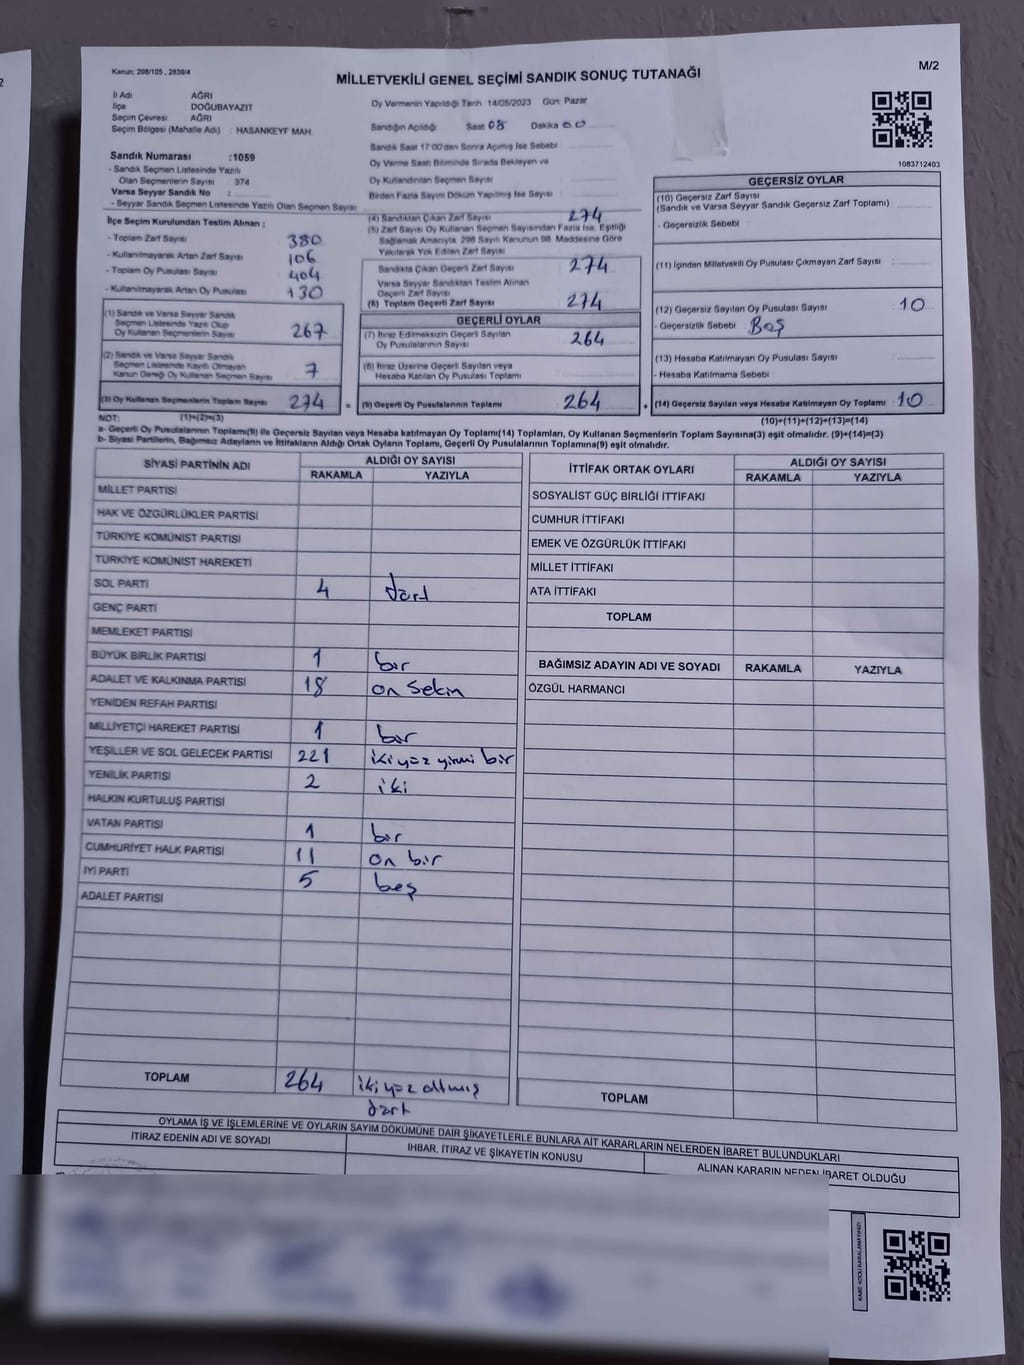 Kanun: 298/105 , 2839/4
M/2
MİLLETVEKİLİ GENEL SEÇİMİ SANDIK SONUÇ TUTANAĞI
İl Adı AĞRI
İlçe : DOĞUBAYAZIT
Seçim Çevresi : AĞRI
Seçim Bölgesi (Mahalle Adı) : HASANKEYF MAH.
Sandık Numarası :1059
- Sandık Seçmen Listesinde Yazılı
Olan Seçmenlerin Sayısı : 374
Varsa Seyyar Sandık No :
- Seyyar Sandık Seçmen Listesinde Yazılı Olan Seçmen Sayısı
Oy Vermenin Yapıldığı Tarih 14/05/2023 Gün: Pazar
Sandığın Açıldığı Saat 08 Dakika 00
Sandık Saat 17:00'den Sonra Açılmış İse Sebebi
Oy Verme Saati Bitiminde Sırada Bekleyen ve
Oy Kullandırılan Seçmen Sayısı
Birden Fazla Sayım Döküm Yapılmış İse Sayısı
1083712403
İlçe Seçim Kurulundan Teslim Alınan ;
- Toplam Zarf Sayısı 380
- Kullanılmayarak Artan Zarf Sayısı 106
- Toplam Oy Pusulası Sayısı 404
- Kullanılmayarak Artan Oy Pusulası 130
(1) Sandık ve Varsa Seyyar Sandık
Seçmen Listesinde Yazılı Olup
Oy Kullanan Seçmenlerin Sayısı 267
(2) Sandık ve Varsa Seyyar Sandık
Seçmen Listesinde Kayıtlı Olmayan
Kanun Gereği Oy Kullanan Seçmen Sayısı 7
(3) Oy Kullanan Seçmenlerin Toplam Sayısı 274
(4) Sandıktan Çıkan Zarf Sayısı 274
(5) Zarf Sayısı Oy Kullanan Seçmen Sayısından Fazla İse, Eşitliği
Sağlamak Amacıyla, 298 Sayılı Kanunun 98. Maddesine Göre
Yakılarak Yok Edilen Zarf Sayısı
Sandıkta Çıkan Geçerli Zarf Sayısı 274
Varsa Seyyar Sandıktan Teslim Alınan
Geçerli Zarf Sayısı
(6) Toplam Geçerli Zarf Sayısı 274
GEÇERLİ OYLAR
(7) İtiraz Edilmeksizin Geçerli Sayılan
Oy Pusulalarının Sayısı 264
(8) İtiraz Üzerine Geçerli Sayılan veya
Hesaba Katılan Oy Pusulası Toplamı
= (9) Geçerli Oy Pusulalarının Toplamı 264
GEÇERSİZ OYLAR
(10) Geçersiz Zarf Sayısı
(Sandık ve Varsa Seyyar Sandık Geçersiz Zarf Toplamı)
- Geçersizlik Sebebi
(11) İçinden Milletvekili Oy Pusulası Çıkmayan Zarf Sayısı
(12) Geçersiz Sayılan Oy Pusulası Sayısı : 10
Geçersizlik Sebebi : Boş
(13) Hesaba Katılmayan Oy Pusulası Sayısı
- Hesaba Katılmama Sebebi
+ (14) Geçersiz Sayılan veya Hesaba Katılmayan Oy Toplamı : 10
NOT: (1)+(2)=(3)
(10)+(11)+(12)+(13)=(14)
a- Geçerli Oy Pusulalarının Toplamı(9) ile Geçersiz Sayılan veya Hesaba katılmayan Oy Toplamı(14) Toplamları, Oy Kullanan Seçmenlerin Toplam Sayısına(3) eşit olmalıdır. (9)+(14)=(3)
b- Siyasi Partilerin, Bağımsız Adayların ve İttifakların Aldığı Ortak Oyların Toplamı, Geçerli Oy Pusulalarının Toplamına(9) eşit olmalıdır.
SİYASİ PARTİNİN ADI ALDIĞI OY SAYISI
RAKAMLA YAZIYLA
MİLLET PARTİSİ
HAK VE ÖZGÜRLÜKLER PARTİSİ
TÜRKİYE KOMÜNİST PARTİSİ
TÜRKİYE KOMÜNİST HAREKETİ
SOL PARTİ 4 dört
GENÇ PARTİ
MEMLEKET PARTİSİ
BÜYÜK BİRLİK PARTİSİ 1 bir
ADALET VE KALKINMA PARTİSİ 18 on sekin
YENİDEN REFAH PARTİSİ
MİLLİYETÇİ HAREKET PARTİSİ 1 bir
YEŞİLLER VE SOL GELECEK PARTİSİ 221 iki yüz yirmi bir
YENİLİK PARTİSİ 2 iki
HALKIN KURTULUŞ PARTİSİ
VATAN PARTİSİ 1 bir
CUMHURİYET HALK PARTİSİ 11 on bir
İYİ PARTİ 5 beş
ADALET PARTİSİ
TOPLAM 264 iki yüz altmış
dört
İTTİFAK ORTAK OYLARI ALDIĞI OY SAYISI
RAKAMLA YAZIYLA
SOSYALİST GÜÇ BİRLİĞİ İTTİFAKI
CUMHUR İTTİFAKI
EMEK VE ÖZGÜRLÜK İTTİFAKI
MİLLET İTTİFAKI
ATA İTTİFAKI
TOPLAM
BAĞIMSIZ ADAYIN ADI VE SOYADI RAKAMLA YAZIYLA
ÖZGÜL HARMANCI
TOPLAM
OYLAMA İŞ VE İŞLEMLERİNE VE OYLARIN SAYIM DÖKÜMÜNE DAİR ŞİKAYETLERLE BUNLARA AİT KARARLARIN NELERDEN İBARET BULUNDUKLARI
İTİRAZ EDENİN ADI VE SOYADI İHBAR, İTİRAZ VE ŞİKAYETİN KONUSU ALINAN KARARIN NEDEN İBARET OLDUĞU
KARE KODU KARALAMAYINIZ!